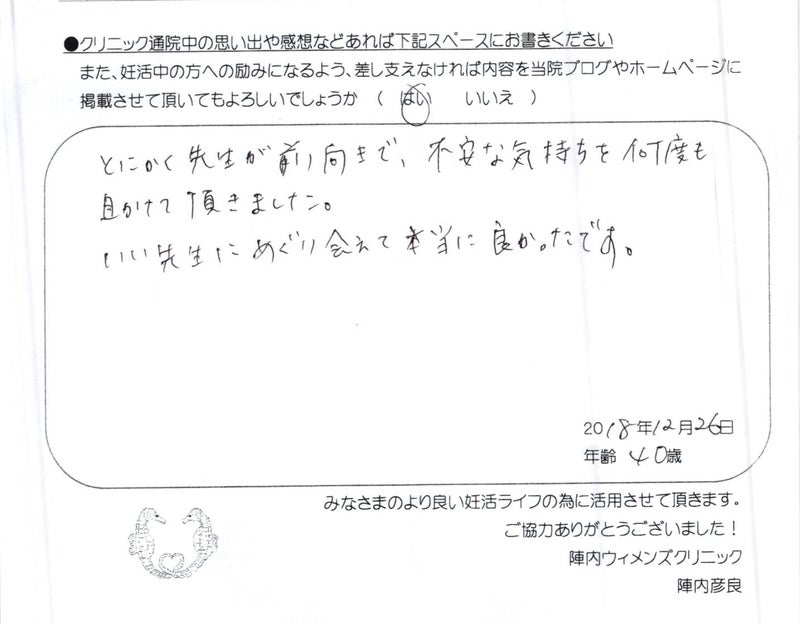 ●クリニック通院中の思い出や感想などあれば下記スペースにお書きください
また、妊活中の方への励みになるよう、差し支えなければ内容を当院ブログやホームページに
掲載させて頂いてもよろしいでしょうか ( はい いいえ )
とにかく先生が前向きで、不安な気持ちを何度も
助けて頂きました。
いい先生にめぐり会えて本当に良かったです。
2018年12月26日
年齢 40歳
みなさまのより良い妊活ライフの為に活用させて頂きます。
ご協力ありがとうございました!
陣内ウィメンズクリニック
陣内彦良